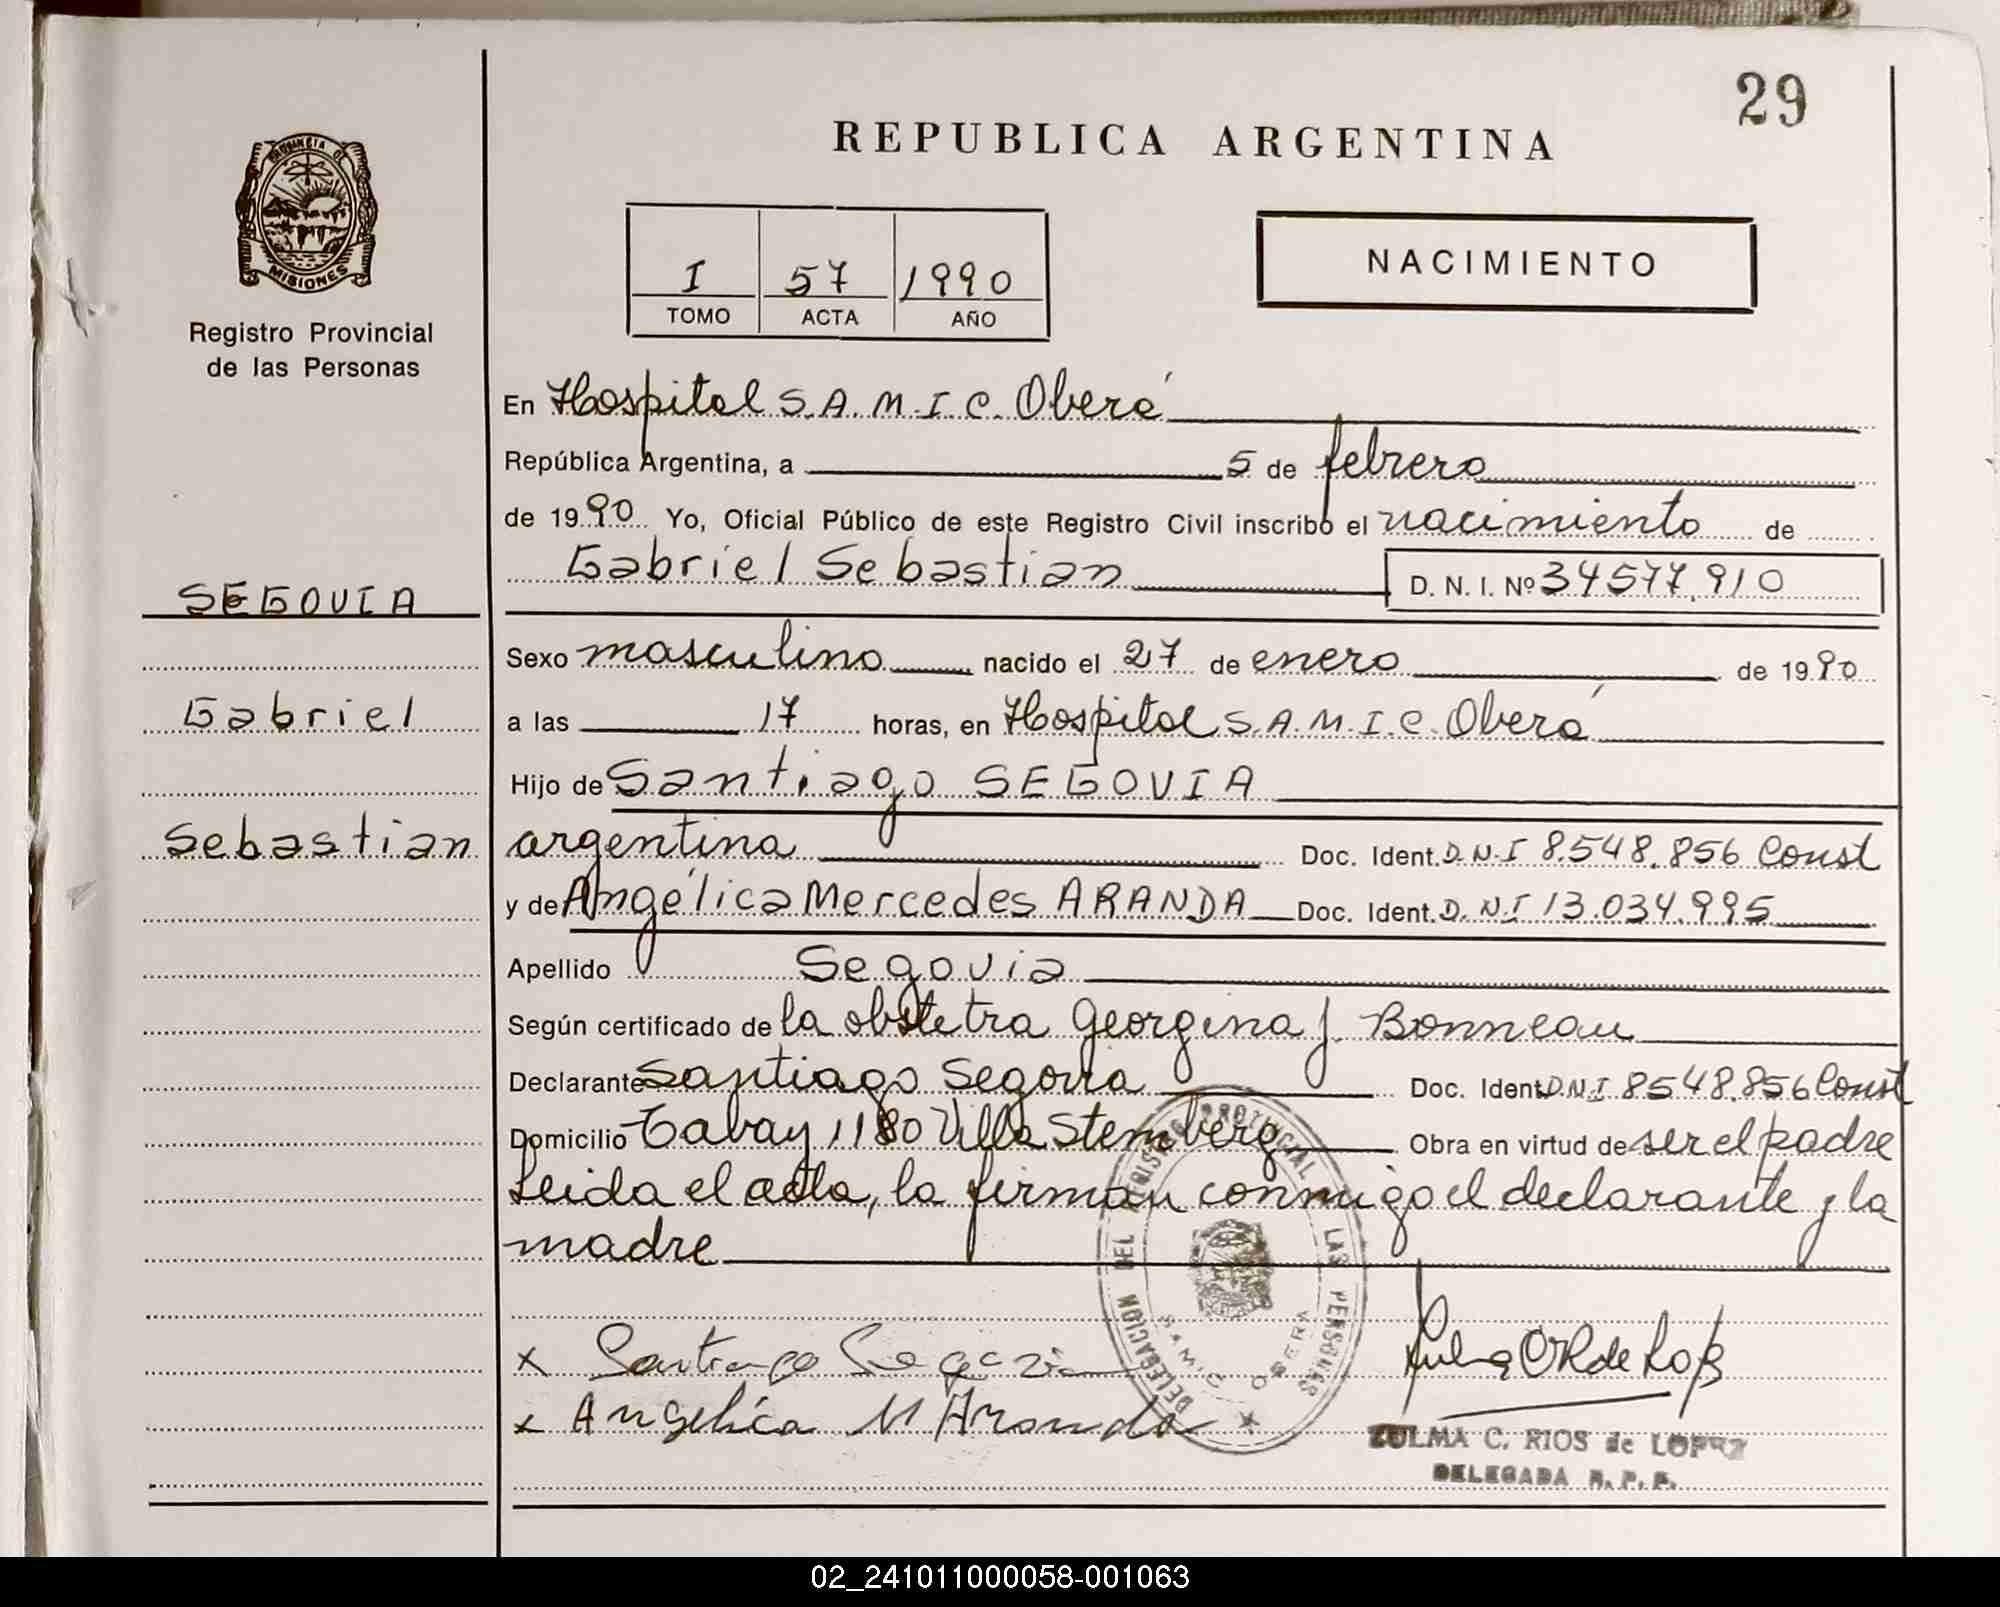 29
REPUBLICA ARGENTINA
PROVINCIA DE
MISIONES
Registro Provincial
de las Personas
I 57 1990
TOMO ACTA AÑO
NACIMIENTO
En Hospital S.A.M.I.C. Oberá
República Argentina, a 5 de febrero
de 1990 Yo, Oficial Público de este Registro Civil inscribo el nacimiento de
Gabriel Sebastian D. N. I. Nº 34577.910
SEGOVIA
Gabriel
Sebastian
Sexo masculino nacido el 27 de enero de 1990
a las 17 horas, en Hospital S.A.M.I.C. Oberá
Hijo de Santiago SEGOVIA
argentina Doc. Ident. D.N.I 8.548.856 Const
y de Angélica Mercedes ARANDA Doc. Ident. D.N.I 13.034.995
Apellido Segovia
Según certificado de la obstetra Georgina J. Bonneau
Declarante Santiago Segovia Doc. Ident D.N.I 8548.856 Const
Domicilio Tabay 1180 Villa Stemberg Obra en virtud de ser el padre
Leida el acta, la firman conmigo el declarante y la
madre
x Santiago Segovia
x Angelica M Aranda
DELEGACION DEL REGISTRO PROVINCIAL DE LAS PERSONAS
SAMIC OBERA
ZULMA C. RIOS de LOPEZ
DELEGADA R. P. P.
02_241011000058-001063